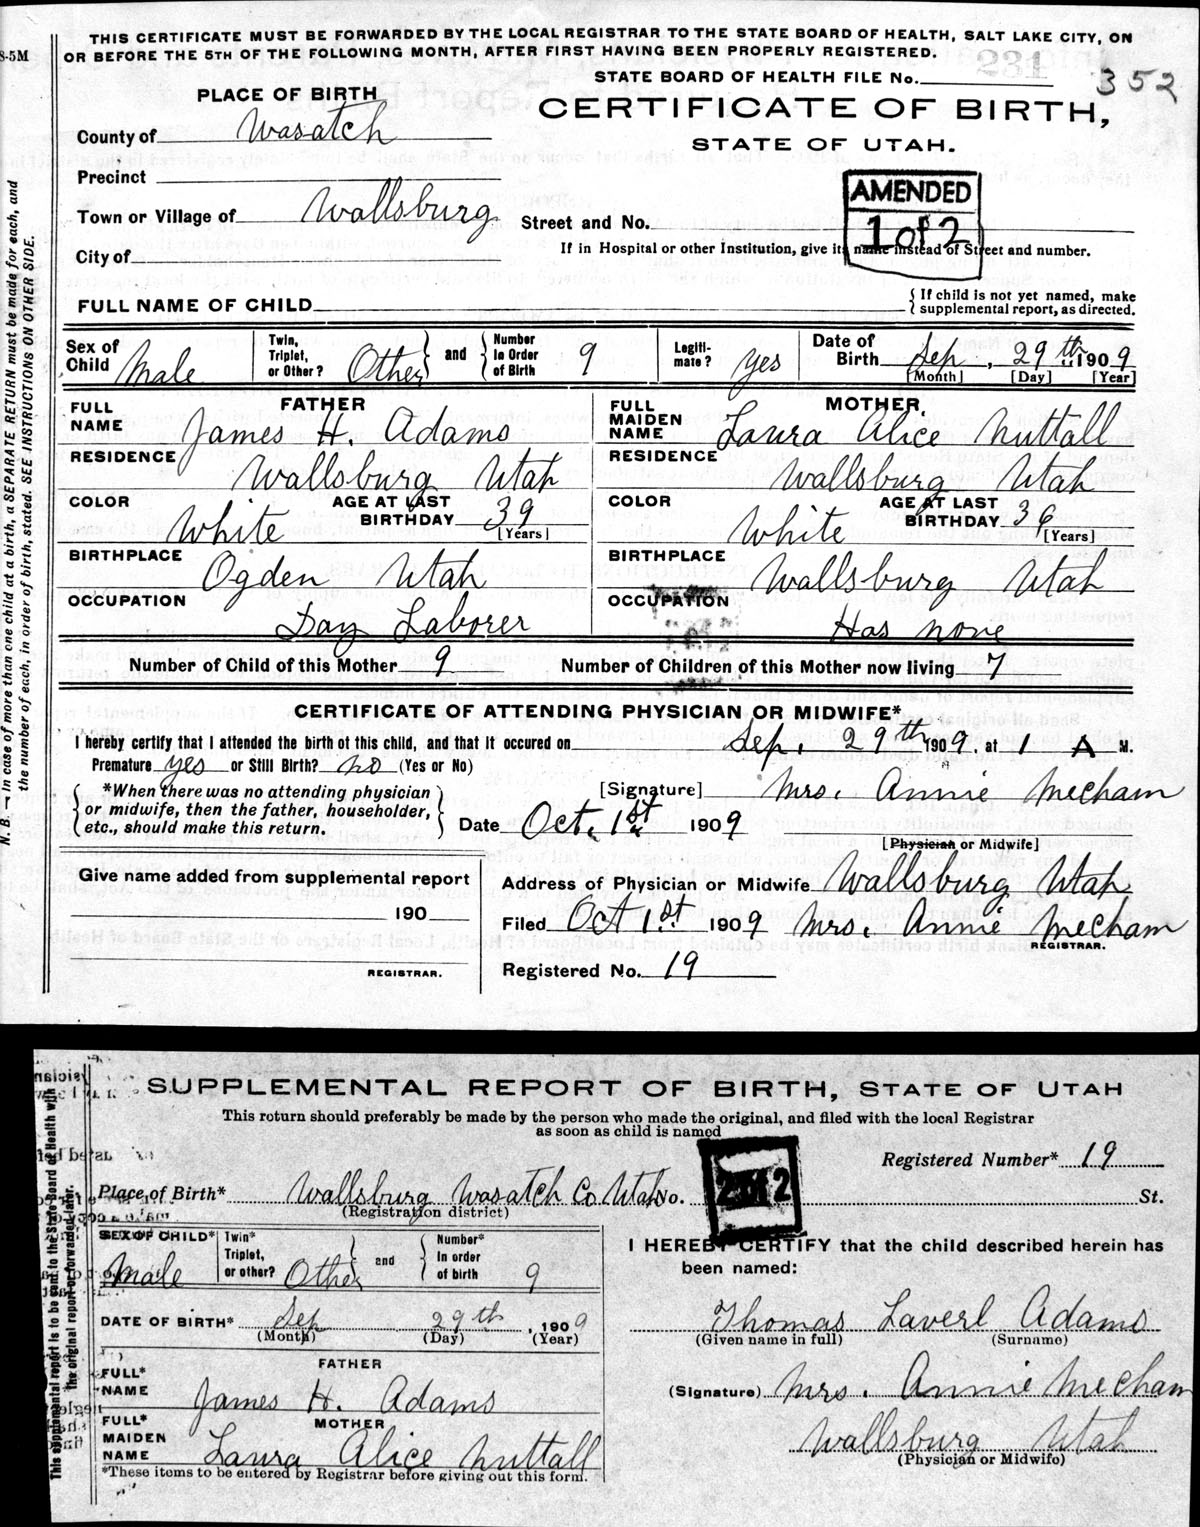 THIS CERTIFICATE MUST BE FORWARDED BY THE LOCAL REGISTRAR TO THE STATE BOARD OF HEALTH, SALT LAKE CITY, ON
OR BEFORE THE 5TH OF THE FOLLOWING MONTH, AFTER FIRST HAVING BEEN PROPERLY REGISTERED.
8-5M
STATE BOARD OF HEALTH FILE No. 231 352
PLACE OF BIRTH
CERTIFICATE OF BIRTH,
STATE OF UTAH.
County of Wasatch
Precinct
AMENDED
1 of 2
Town or Village of Wallsburg
Street and No.
City of
If in Hospital or other Institution, give its name instead of Street and number.
FULL NAME OF CHILD
If child is not yet named, make
supplemental report, as directed.
Sex of Child Male
Twin, Triplet, or Other? Other
and
Number In Order of Birth 9
Legiti-mate? yes
Date of Birth Sep. 29th 1909
[Month] [Day] [Year]
FATHER
FULL NAME James H. Adams
MOTHER
FULL MAIDEN NAME Laura Alice Nuttall
RESIDENCE Wallsburg Utah
RESIDENCE Wallsburg Utah
COLOR White AGE AT LAST BIRTHDAY 39 [Years]
COLOR White AGE AT LAST BIRTHDAY 36 [Years]
BIRTHPLACE Ogden Utah
BIRTHPLACE Wallsburg Utah
OCCUPATION Day Laborer
OCCUPATION Has none
Number of Child of this Mother 9 Number of Children of this Mother now living 7
CERTIFICATE OF ATTENDING PHYSICIAN OR MIDWIFE*
I hereby certify that I attended the birth of this child, and that it occured on Sep. 29th 1909, at 1 A M.
Premature yes or Still Birth? no (Yes or No)
*When there was no attending physician
or midwife, then the father, householder,
etc., should make this return.
[Signature] Mrs. Annie Mecham
Date Oct. 1st 1909
[Physician or Midwife]
Give name added from supplemental report
190
REGISTRAR.
Address of Physician or Midwife Wallsburg Utah
Filed Oct 1st 1909 Mrs. Annie Mecham
REGISTRAR.
Registered No. 19
N. B.—In case of more than one child at a birth, a SEPARATE RETURN must be made for each, and
the number of each, in order of birth, stated. SEE INSTRUCTIONS ON OTHER SIDE.
SUPPLEMENTAL REPORT OF BIRTH, STATE OF UTAH
This return should preferably be made by the person who made the original, and filed with the local Registrar
as soon as child is named
Registered Number* 19
Place of Birth* Wallsburg Wasatch Co Utah No. St.
(Registration district)
2 of 2
SEX OF CHILD* Male
Twin* Triplet, or other? Other
and
Number* In order of birth 9
I HEREBY CERTIFY that the child described herein has
been named:
DATE OF BIRTH* Sep 29th, 1909
(Month) (Day) (Year)
Thomas Laverl Adams
(Given name in full) (Surname)
FATHER
FULL* NAME James H. Adams
(Signature) Mrs. Annie Mecham
MOTHER
FULL* MAIDEN NAME Laura Alice Nuttall
Wallsburg Utah
(Physician or Midwife)
*These items to be entered by Registrar before giving out this form.
This supplemental report is to be send to the State Board of Health with
the original report or forwarded later.